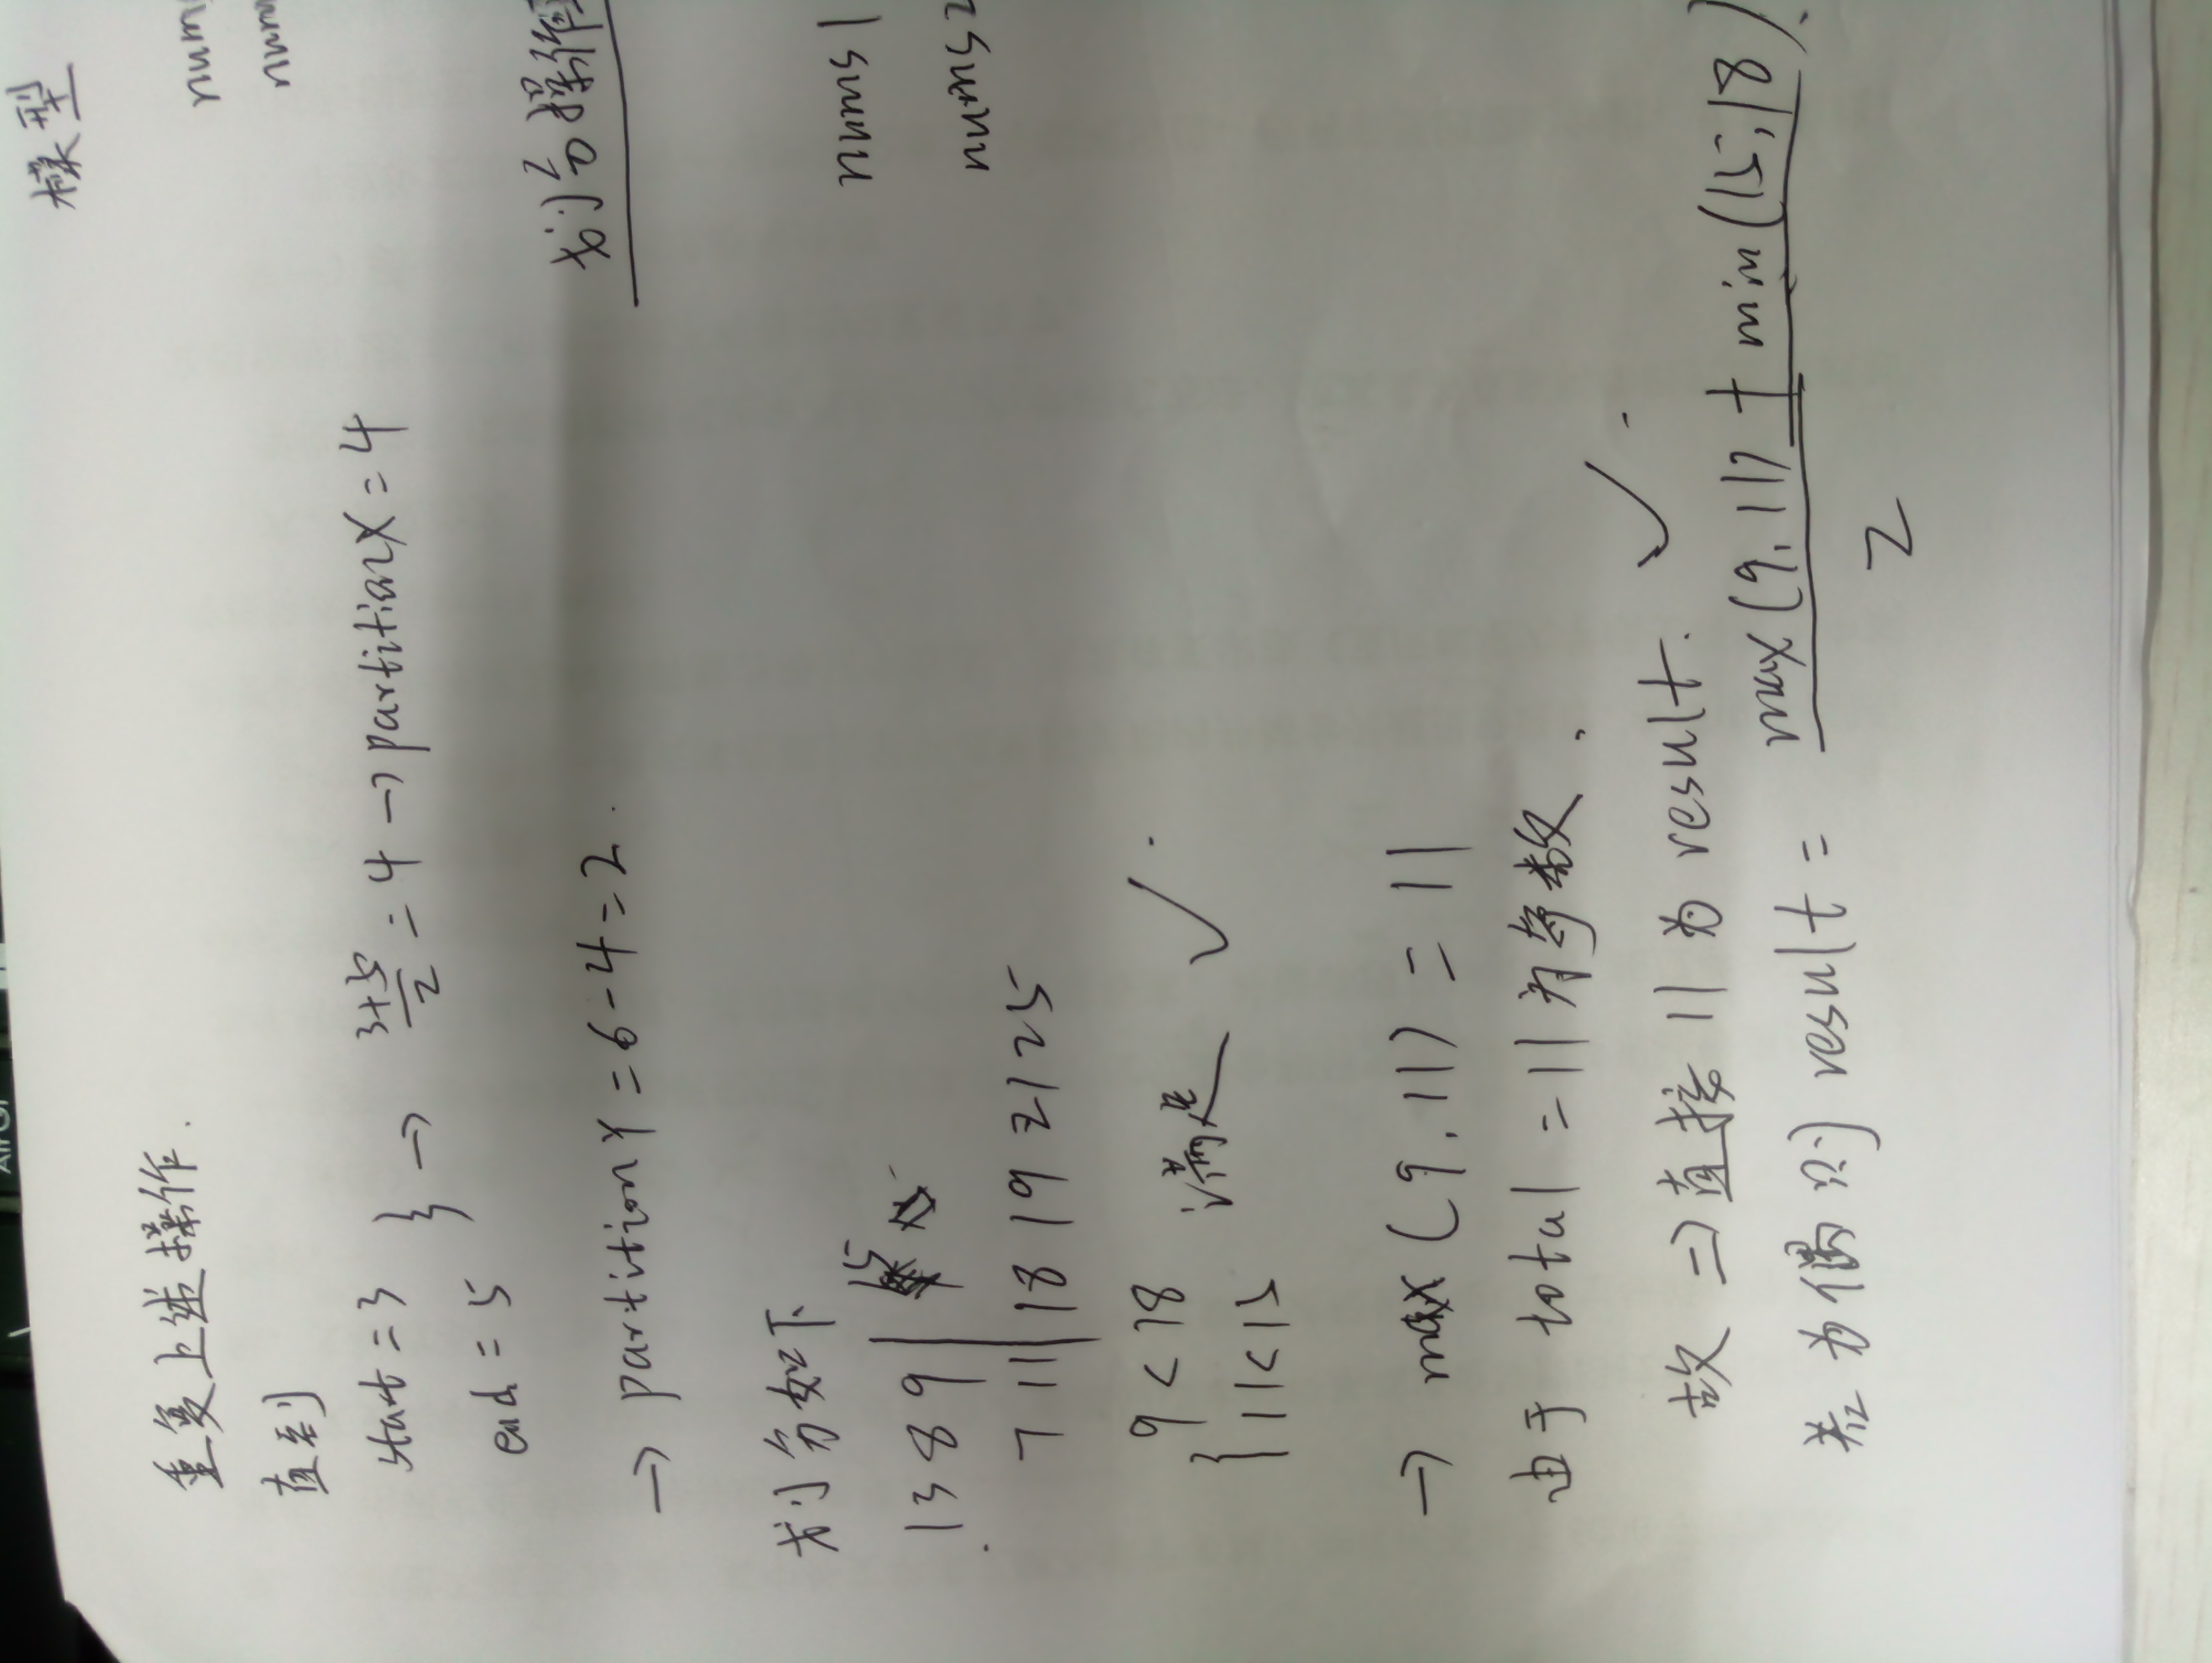 重复上述操作.
直到
start = 3 } → 3+5/2 = 4 → partitionX = 4
end = 5
→ partitionY = 6 - 4 = 2.
划分如下
1 3 8 9 | 15
7 11 | 18 19 21 25
{ 9 < 18
11 < 15 满足 ✓.
→ max (9, 11) = 11
由于 total = 11 为奇数.
故 ⇒ 直接 11 为 result. ✓
若为偶则 result = max(9, 11) + min(15, 18) / 2
模型
num
num
nums 1
nums 2